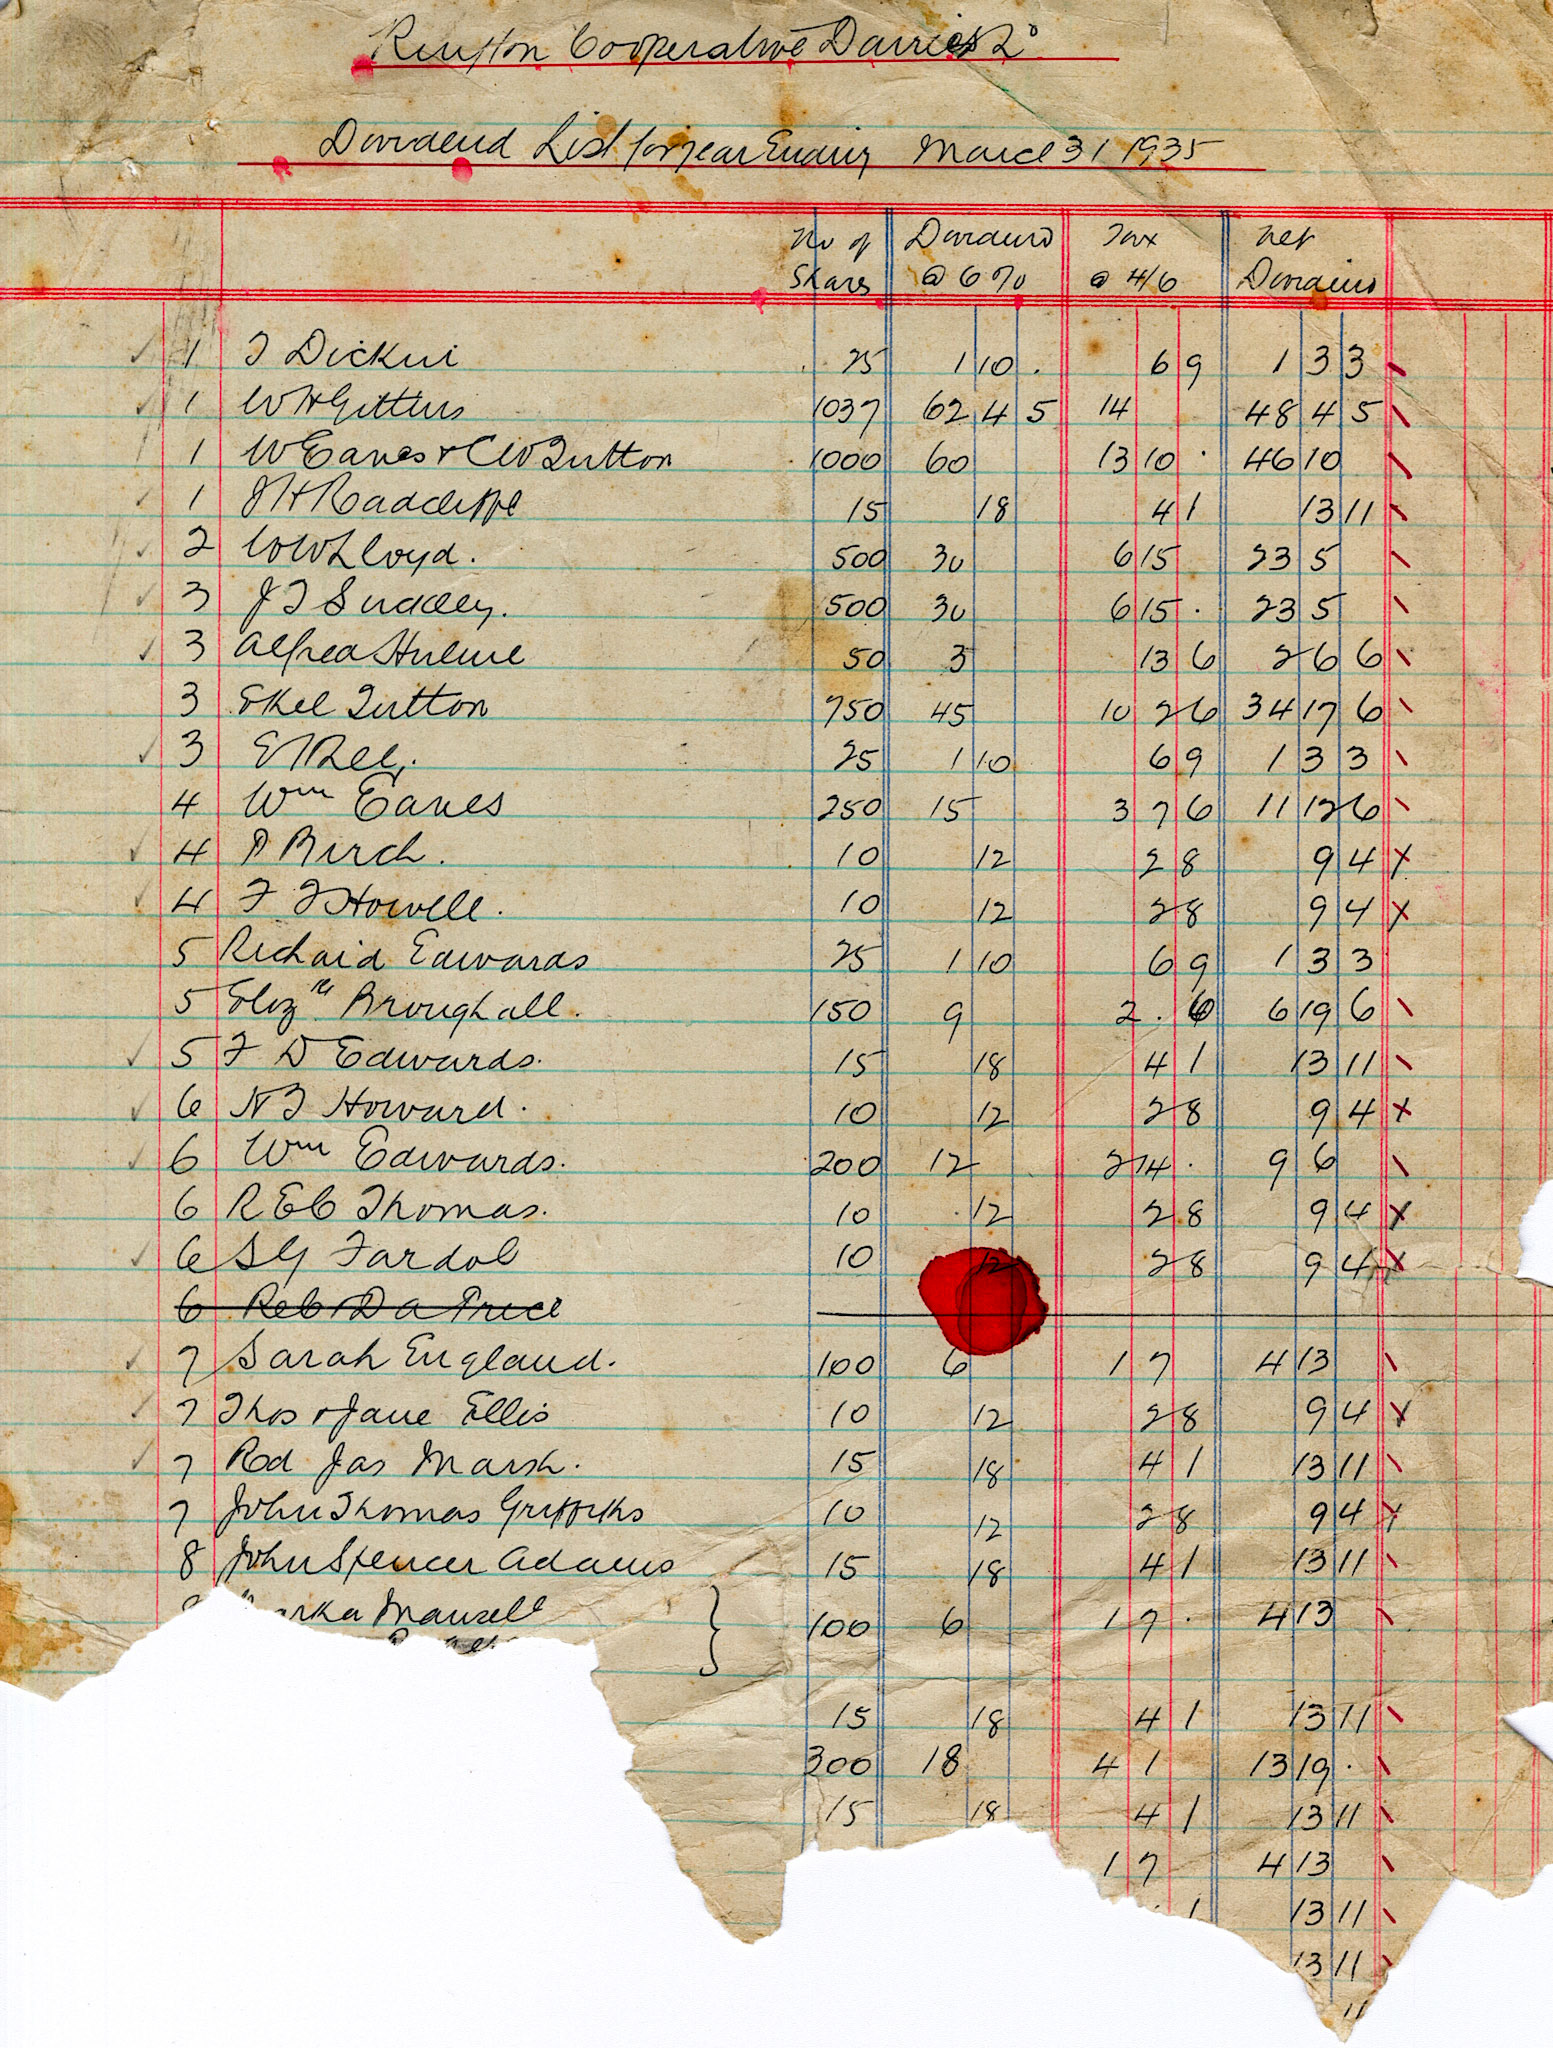 Cooperative Dairies Ld
Dividend List for year Ending March 31 1935
No of Shares Dividend @ 6% Tax @ 4/6 Net Dividend
1 T Dickin 25 1 10 . 6 9 1 3 3
1 W H Gittins 1037 62 4 5 14 48 4 5
1 W Eanes & C W Sutton 1000 60 13 10 . 46 10
1 J H Radcliffe 15 18 4 1 13 11
2 W W Lloyd. 500 30 6 15 23 5
3 J T 500 30 6 15 . 23 5
3 Alfred Hulme 50 3 13 6 2 6 6
3 Sutton 750 45 10 2 6 34 17 6
3 E 25 1 10 6 9 1 3 3
4 Wm Eanes 250 15 3 7 6 11 12 6
4 Birch. 10 12 2 8 9 4 x
4 F J Howell. 10 12 2 8 9 4 x
5 Richard Edwards 25 1 10 6 9 1 3 3
5 Elizth Broughall. 150 9 2 . 6 6 19 6
5 F D Edwards. 15 18 4 1 13 11
6 Howard. 10 12 2 8 9 4 x
6 Wm Edwards. 200 12 2 14 . 9 6
6 R E C Thomas. 10 12 2 8 9 4 x
6 S G Fardol 10 12 2 8 9 4 x
6 Reb Da Price
7 Sarah England. 100 6 1 7 4 13
7 Thos & Jane Ellis 10 12 2 8 9 4 x
7 Rd Jas Marsh. 15 18 4 1 13 11
7 John Thomas Griffiths 10 12 2 8 9 4 x
8 John Spencer Adams 15 18 4 1 13 11
Mansell } 100 6 1 7 . 4 13
15 18 4 1 13 11
300 18 4 1 13 19 .
15 18 4 1 13 11
1 7 4 13
1 13 11
13 11
11